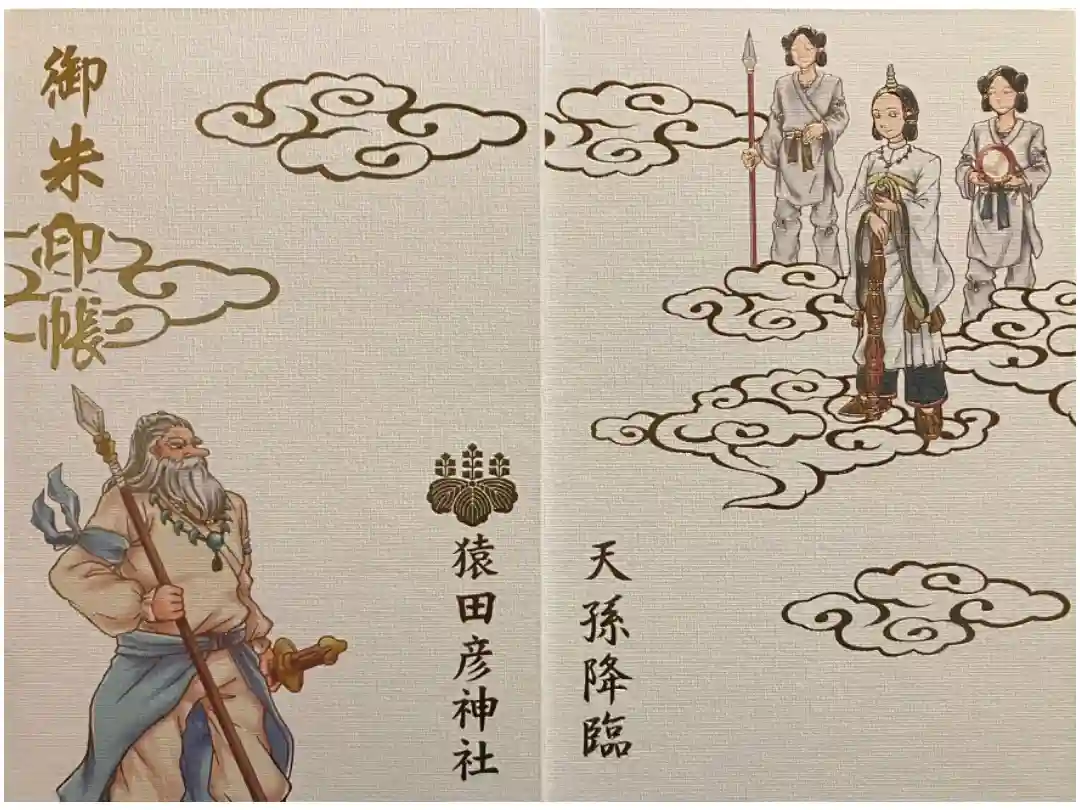 御朱印帳
天孫降臨
猿田彦神社